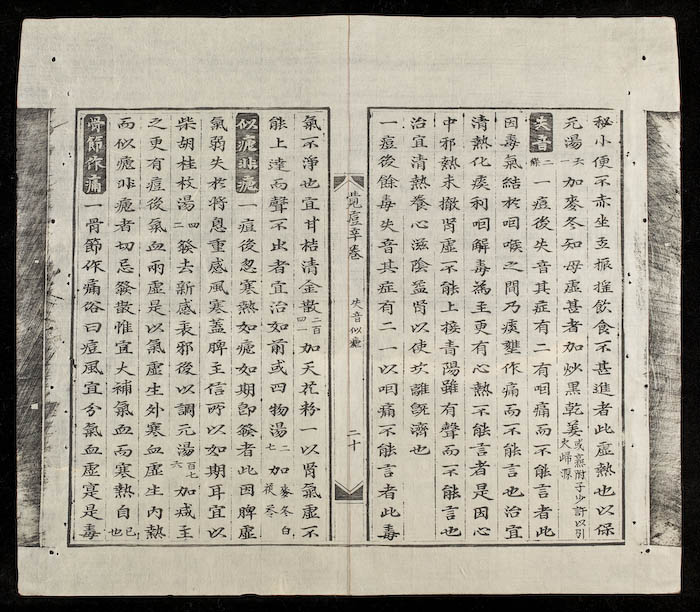 秘小便不赤坐立振搖飲食不甚進者此虛熱也以保
元湯一六加麥冬知母虛甚者加炒黑乾姜或熟附子少許以引火歸源
失音二條一痘後失音其症有二有咽痛而不能言者此
因毒氣結於咽喉之間乃痰壅作痛而不能言也治宜
清熱化痰利咽解毒為主更有心熱不能言者是因心
中邪熱未撤腎虛不能上接青陽雖有聲而不能言也
治宜清熱養心滋陰益腎以使坎離既濟也
一痘後餘毒失音其症有二一以咽痛不能言者此毒
痘疹卷
失音似瘧
二十
氣不淨也宜甘桔清金散二百四一加天花粉一以腎氣虛不
能上達而聲不出者宜治如前或四物湯二七加麥冬白茯苓
似瘧非瘧一痘後忽寒熱如瘧如期即發者此因脾虛
氣弱失於將息重感風寒蓋脾主信所以如期耳宜以
柴胡桂枝湯四二發去新感表邪後以調元湯百七六加减主
之更有痘後氣血兩虛是以氣虛生外寒血虛生內熱
而似瘧非瘧者切忌發散惟宜大補氣血而寒熱自已也
骨節作痛一骨節作痛俗曰痘風宜分氣血虛寔是毒